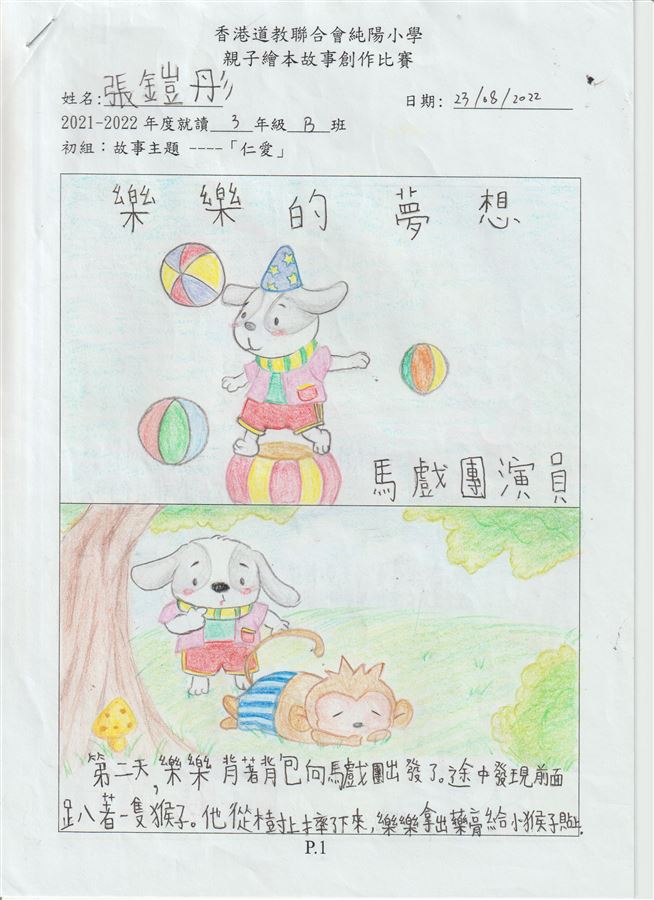 香港道教聯合會純陽小學
親子繪本故事創作比賽
姓名:張鎧彤 日期: 23/08/2022
2021-2022 年度就讀 3 年級 B 班
初組：故事主題 ----「仁愛」
樂樂的夢想
馬戲團演員
第二天,樂樂背著背包向馬戲團出發了。途中發現前面
趴著一隻猴子。他從樹上摔下來,樂樂拿出藥膏給小猴子貼上.
P.1